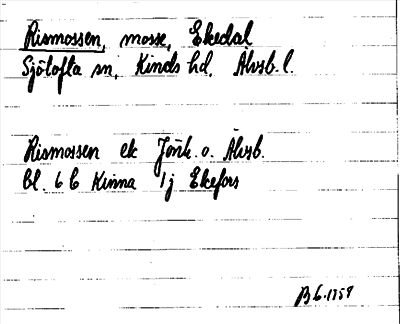 Rismossen, mosse, Ekedal
Sjötofta sn, Kinds hd, Älvsb. l.
Rismossen ek Jönk. o. Älvsb.
bl. 6 C Kinna 1j Ekefors
1959